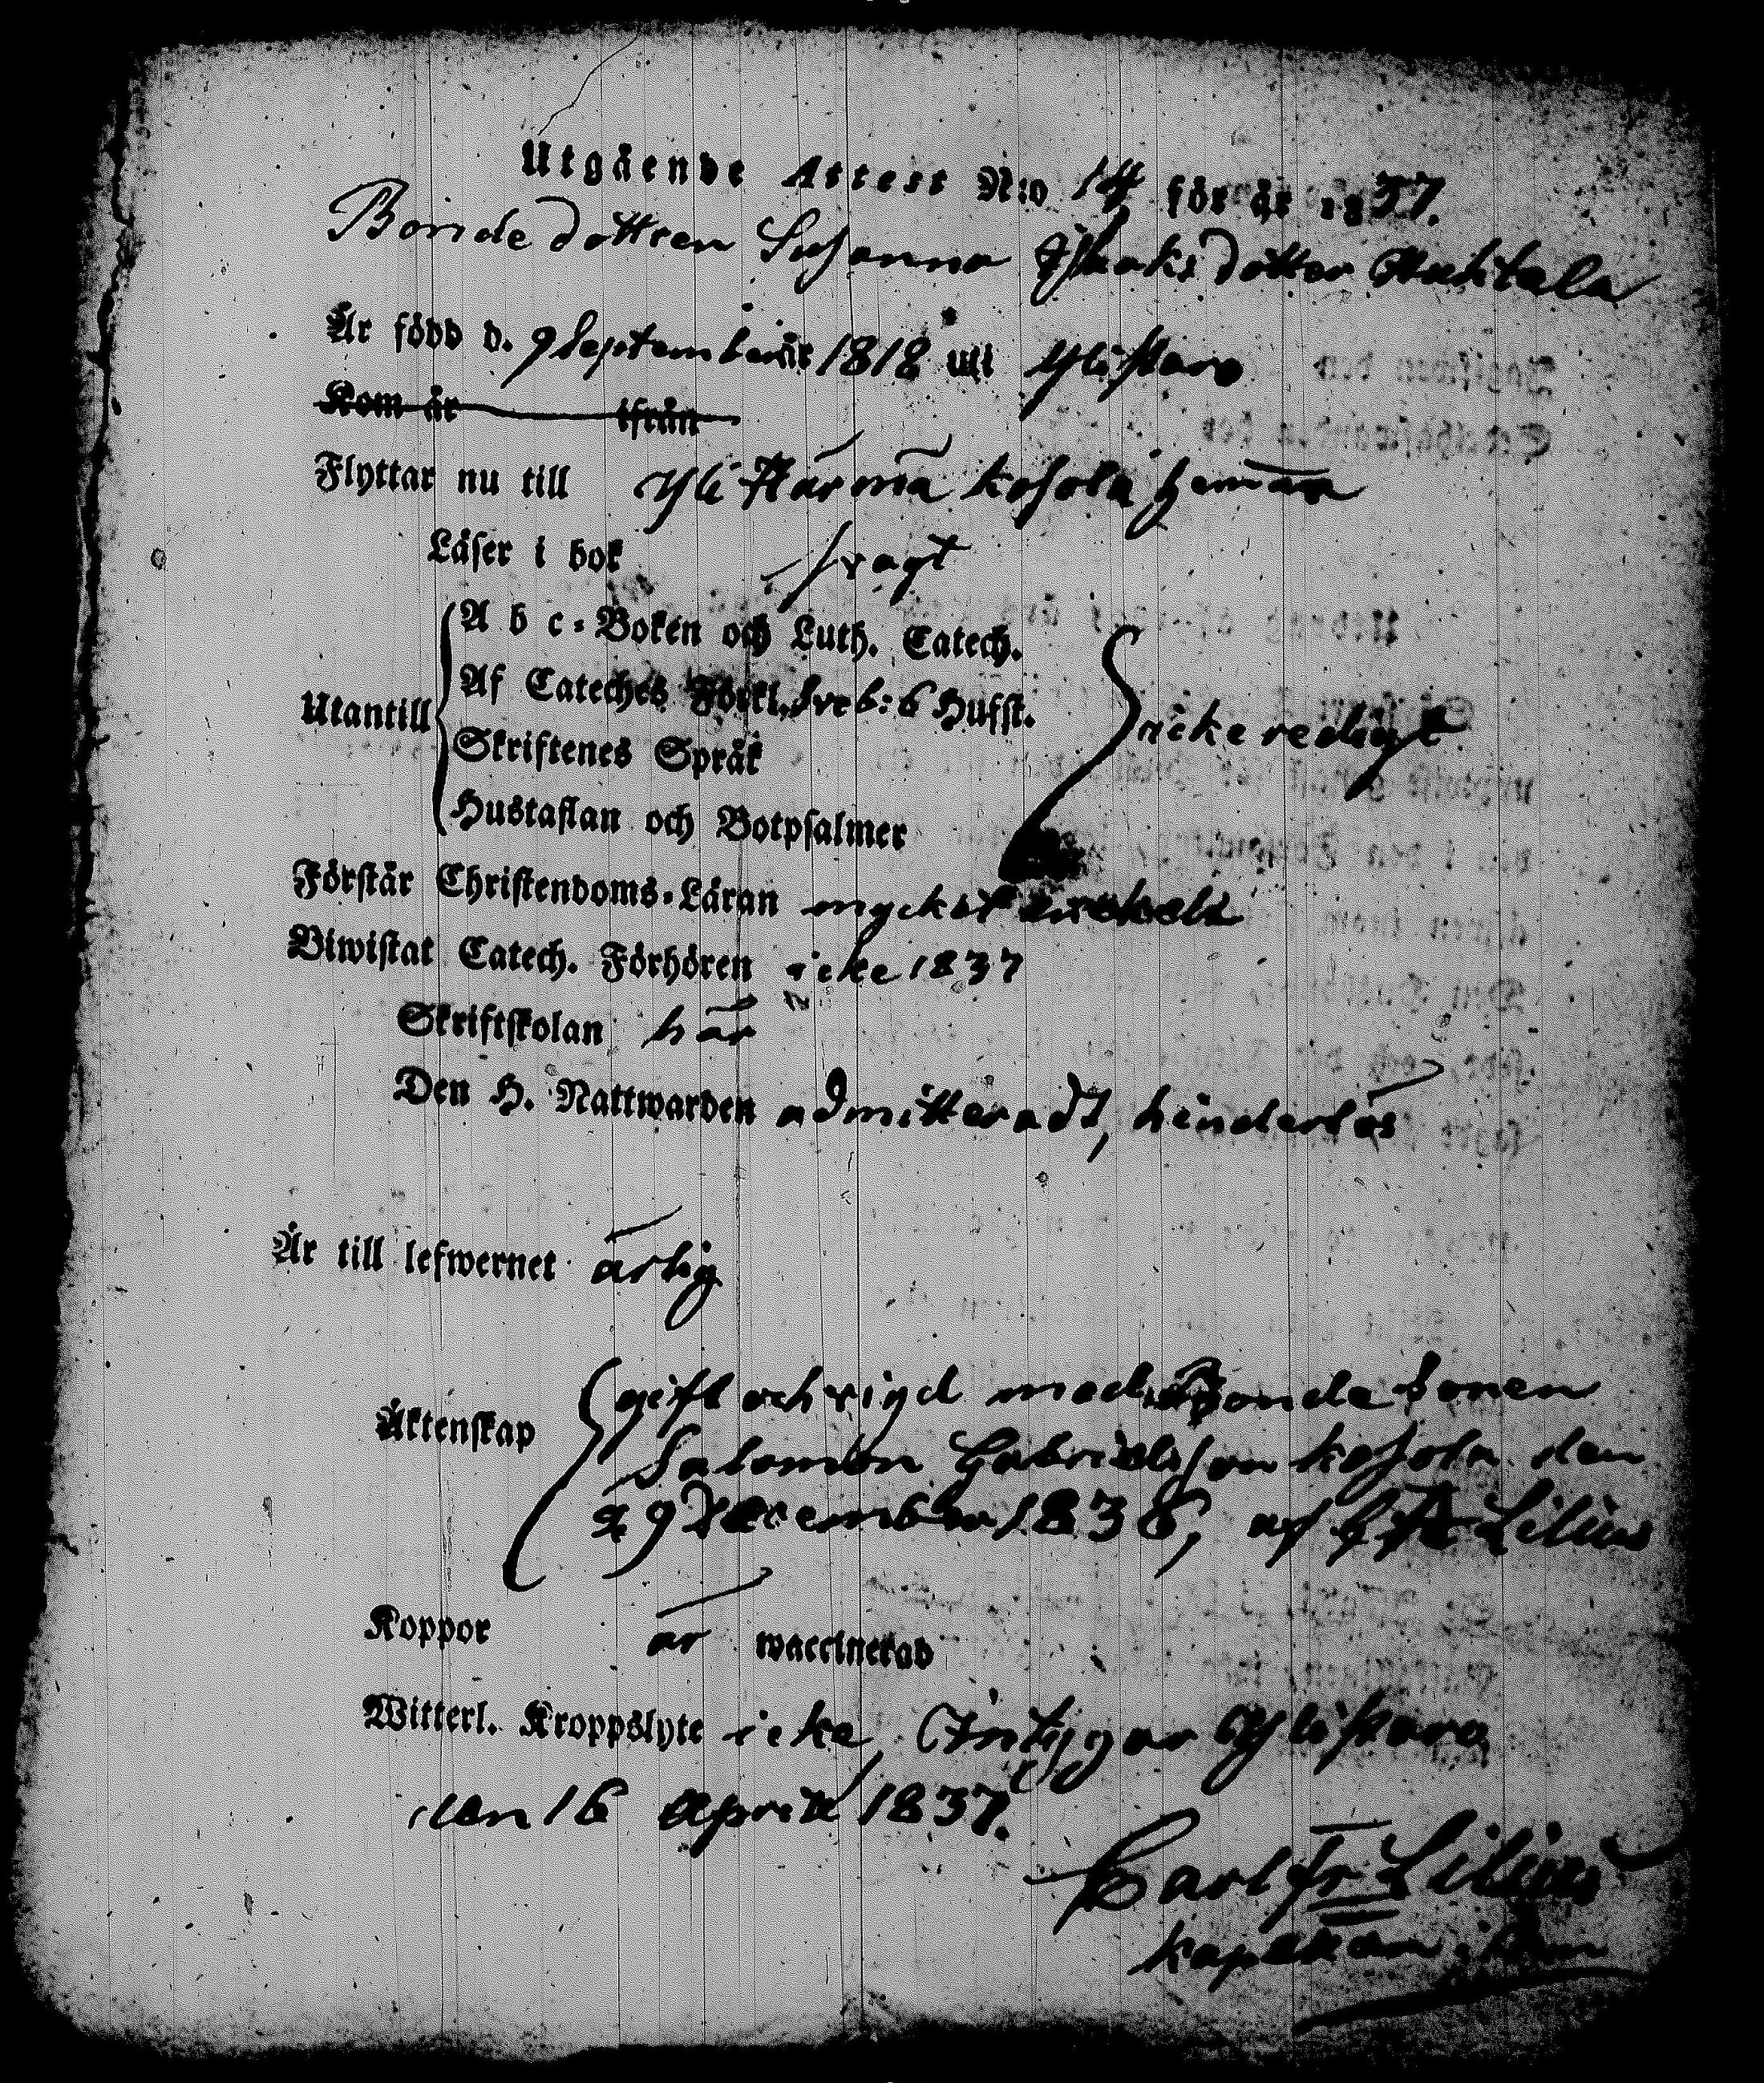 Utgående Attest N:o 14 för år 1837.
Bonde dottren Susanna Isaaksdotter Huhtala
Är född d. 9 September år 1818 uti Ylistaro
Kom år ifrån
Flyttar nu till Yli Härmä Kojola heman
Läser i bok svagt
A b c-Boken och Luth. Catech.
Af Cateches Förkl. Sveb: 6 Hufst.
Utantill icke redigt
Skriftenes Språk
Hustaflan och Botpsalmer
Förstår Christendoms-Läran mycket enskelt
Biwistat Catech. Förhören icke 1837
Skriftskolan här
Den H. Nattwarden admitteradt, hinderlös
Är till lefwernet ärlig
Äktenskap gift och vigd med Bonde Sonen
Salomon Gabrielsson Kojola den
29 December 1836, af Lilius
Koppor är waccinerad
Witterl. Kroppslyte icke, Intygar Ylistaro
den 16 April 1837.
Carl Fr. Lilius
kapellan